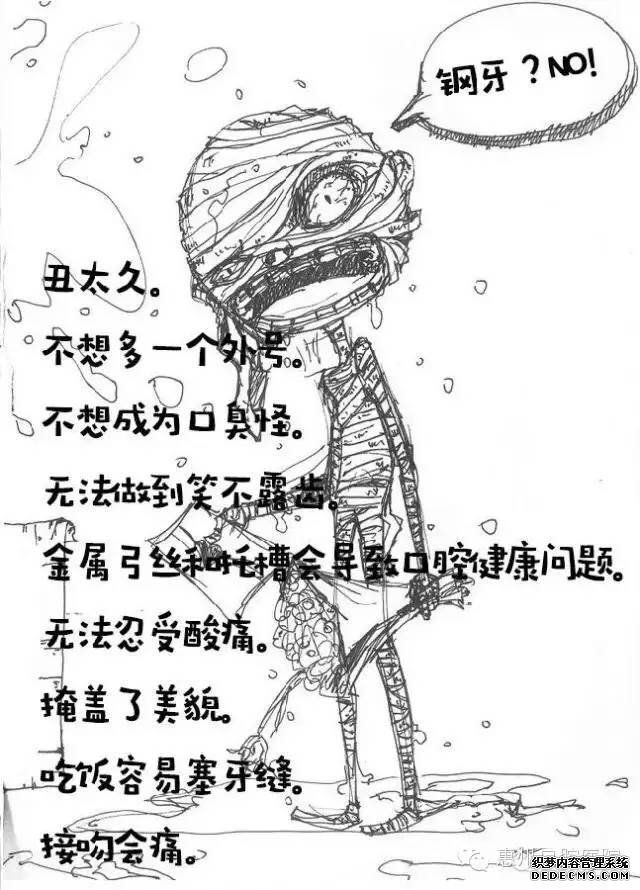 钢牙？NO!
丑太久。
不想多一个外号。
不想成为口臭怪。
无法做到笑不露齿。
金属弓丝和托槽会导致口腔健康问题。
无法忍受酸痛。
掩盖了美貌。
吃饭容易塞牙缝。
接吻会痛。
惠州口腔医院
织梦内容管理系统
DEDECMS.COM